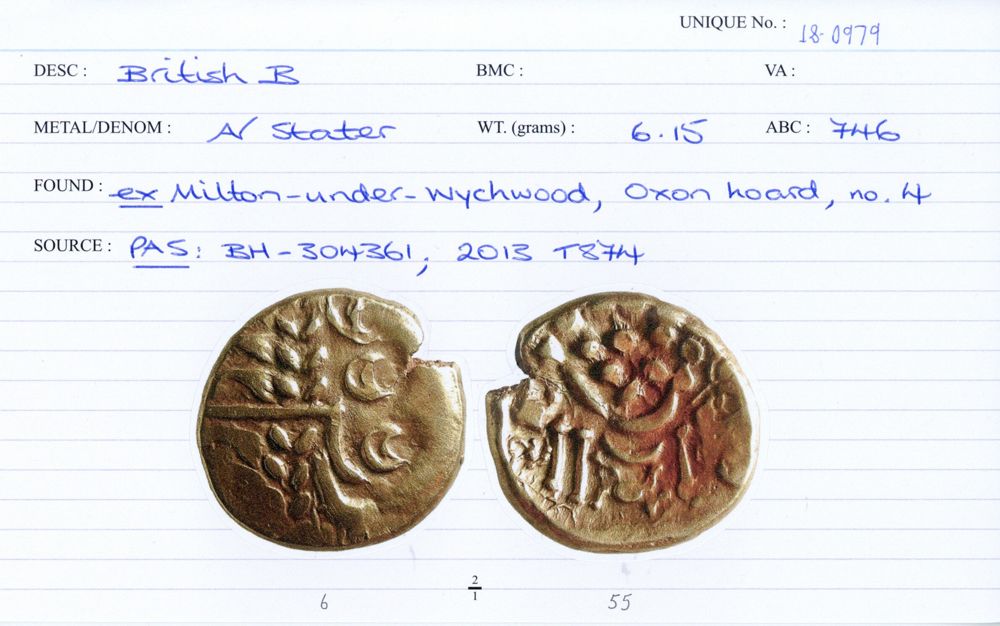 UNIQUE No. : 18-0979
DESC : British B BMC : VA :
METAL/DENOM : AV Stater WT. (grams) : 6.15 ABC : 746
FOUND : ex Milton-under-Wychwood, Oxon hoard, no. 4
SOURCE : PAS: BH-304361; 2013 T874
2
1
6 55